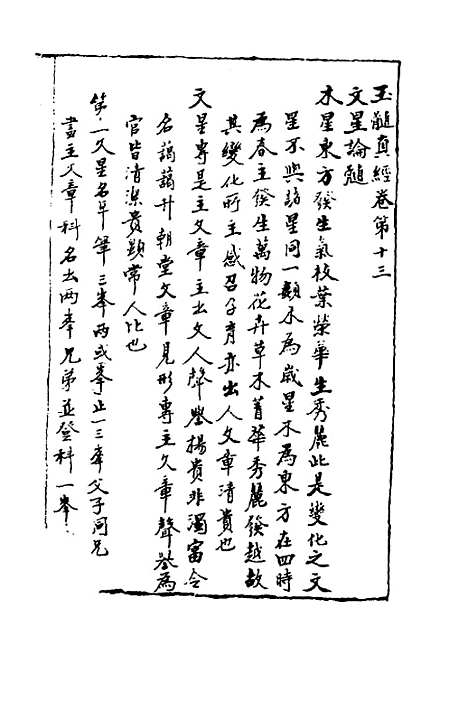 玉髓真經卷第十三
文星論髓
木星東方發生氣枝葉榮華生秀麗此是變化之文
星不與諸星同一類木為歲星木為東方在四時
為春主發生萬物花卉草木菁華秀麗發越故
其變化所主感召孕育亦出人文章清貴也
文星專是主文章主出文人聲譽揚貴非濁富合
名藹藹升朝堂文章見形專主文章聲譽為
官皆清潔貴顯常人比也
第一文星名卓筆三峯兩或峯止一三峯父子同兄
書主文章科名出兩峯兄弟並登科一峯